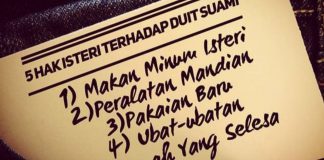 5 HAK ISTERI TERHADAP DUIT SUAMI
1) Makan Minum Isteri
2) Peralatan Mandian
3) Pakaian Baru
4) Ubat-ubatan
Yang Selesa